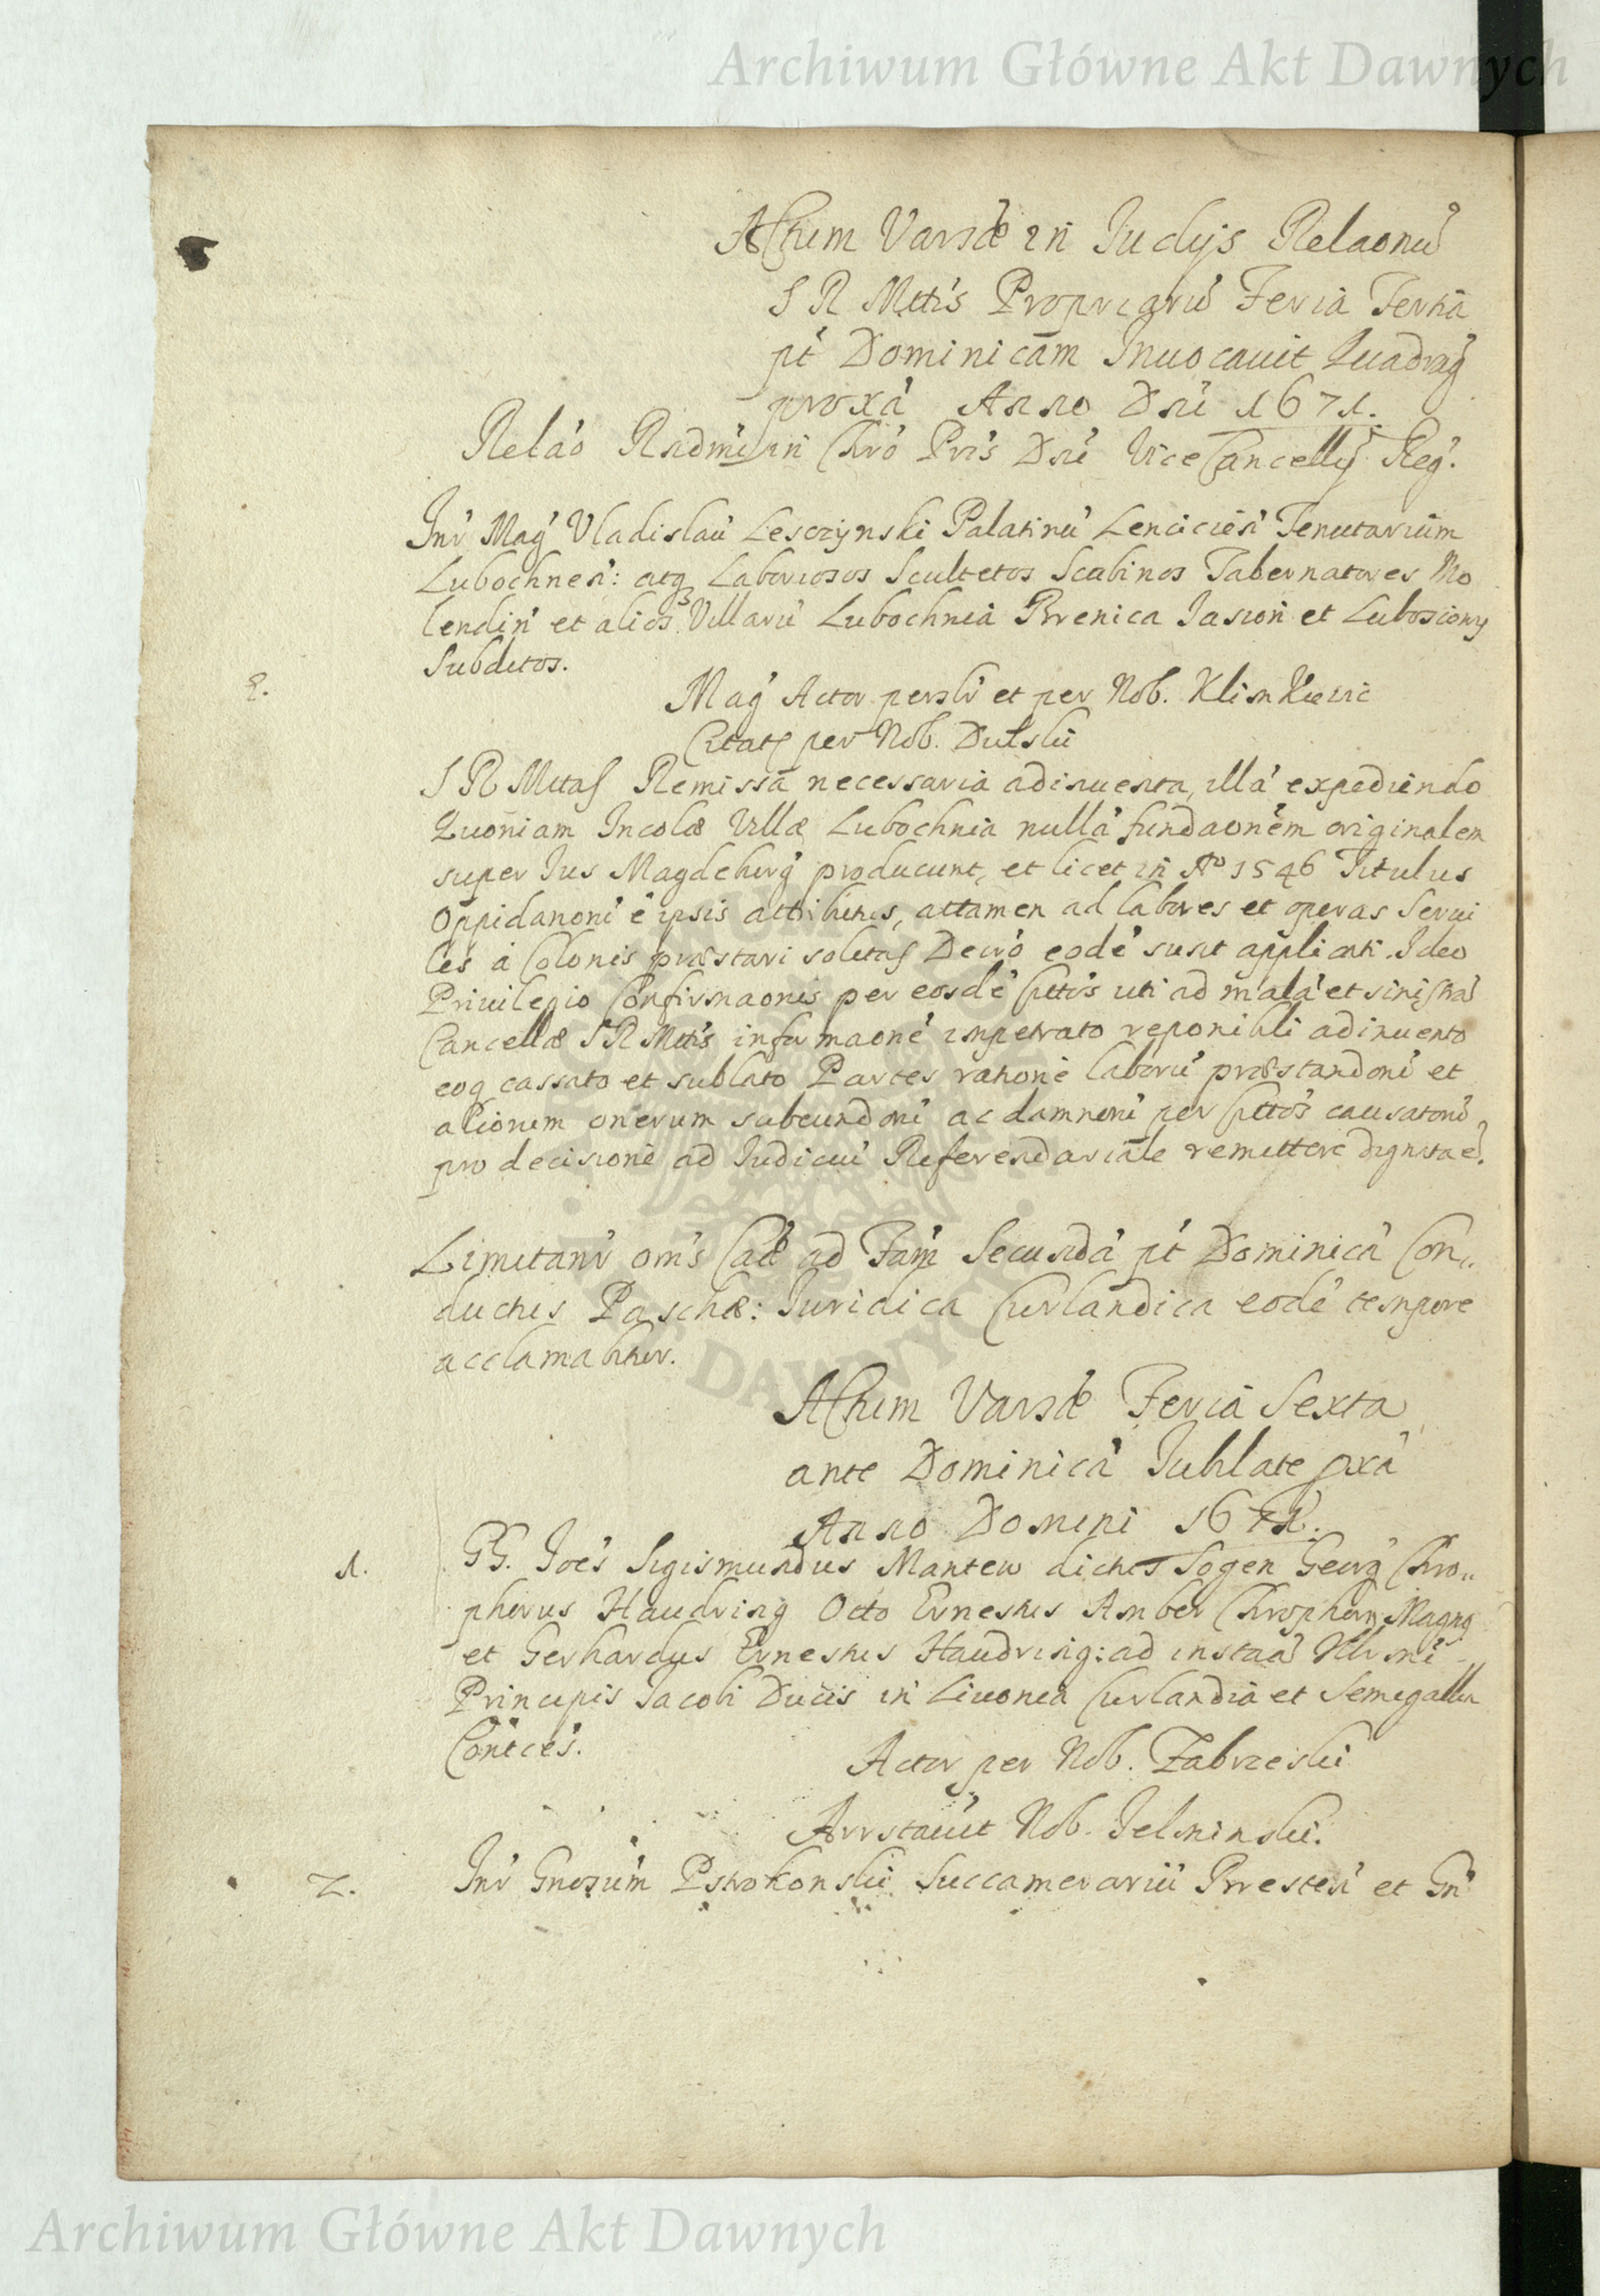 Archiwum Główne Akt Dawnych
Actum Varsae in Iudys Relaonu
S R Mttis Propriaru Feria Tertia
pt Dominicam Inuocauit Quadrag
proxa Anno Dni 1671.
Relao Rndmi in Chro Pris Dni Vice Cancelly Reg.
Inr Mag Vladislau Lesczynski Palatinu Lencicien Tenutarium
Lubochnen: atq Laboriosos Scultetos Scabinos Tabernatores Mo
lendin et alios Villaru Lubochnia Brenica Jasion et Luboscony
Subditos.
2.
Mag Actor persolr et per Nob. Klimkiewic
Citati per Nob. Dulski
S R Mttas Remissa necessaria adinuenta, illa expediendo
Quoniam Incolae Villae Lubochnia nulla fundaonem originalem
super Ius Magdeburg producunt, et licet in Ao 1546 Titulus
Oppidanoru e ipsis attributus, attamen ad labores et operas Serui
les a Colonis praestari solitas Decro eode sunt applicati. Ideo
Priuilegio Confirmaonis per eosde Cittos uti ad mala et sinistra
Cancellae S R Mttis informaone impetrato reponibili adinuento
eoq cassato et sublato Partes ratione laboru praestandoru et
aliorum onerum subeundoru ac damnoru per Cittos causatoru
pro decisione ad Iudiciu Referendariale remittere dignata e.
Limitanr oms Cae ad Fam Secunda pt Dominica Con„
ductus Paschae: Iuridica Curlandica eode tempore
acclamabitur.
Actum Varsae Feria Sexta
ante Dominica Jubilate pxa
Anno Domini 1671.
1.
GG. Joes Sigismundus Manteu dictus Sogen Georg Chro„
phorus Haudring Otto Ernestus Amber Chrophorus Magnq
et Gerhardus Ernestus Haudring: ad instaa Illrmi
Principis Jacobi Ducis in Liuonia Curlandia et Semigallia
Contces.
Actor per Nob. Zabrzeski
Arrstauit Nob. Jelminski.
2.
Inr Gnosum Pstrokonski Succamerariu Brresten et Gn
Archiwum Główne Akt Dawnych